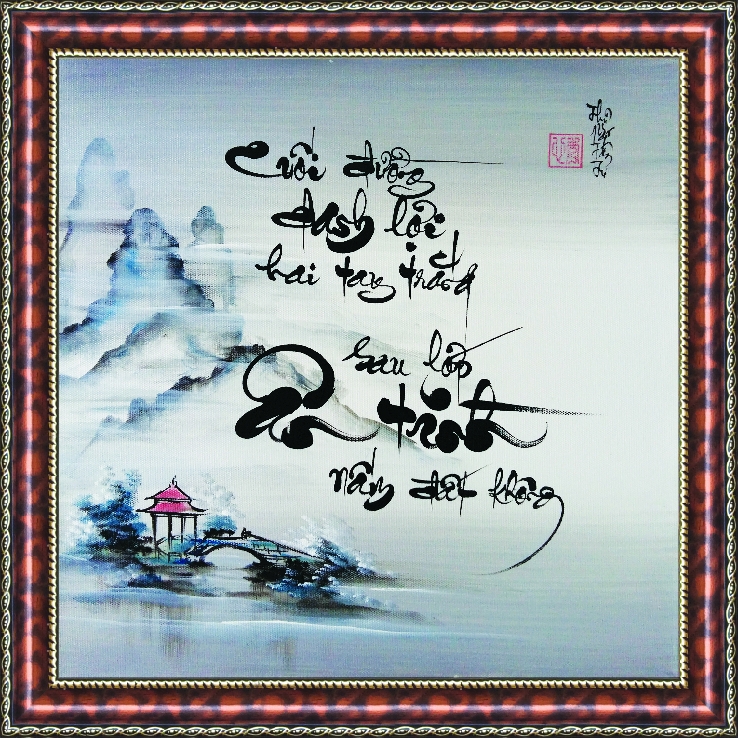 Cuối đường
danh lợi
hai tay trắng
Sau lớp
Ân tình
nấm đất không